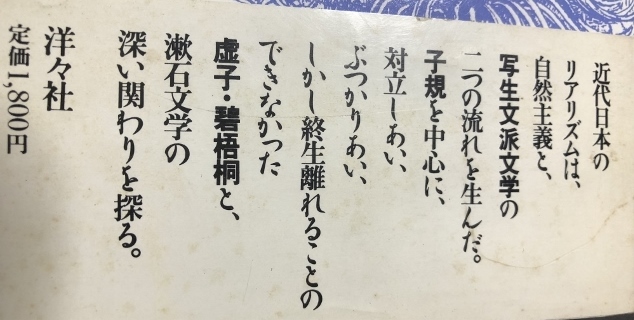 近代日本の
リアリズムは、
自然主義と、
写生文派文学の
二つの流れを生んだ。
子規を中心に、
対立しあい、
ぶつかりあい、
しかし終生離れることの
できなかった
虚子・碧梧桐と、
漱石文学の
深い関わりを探る。
洋々社
定価1,800円